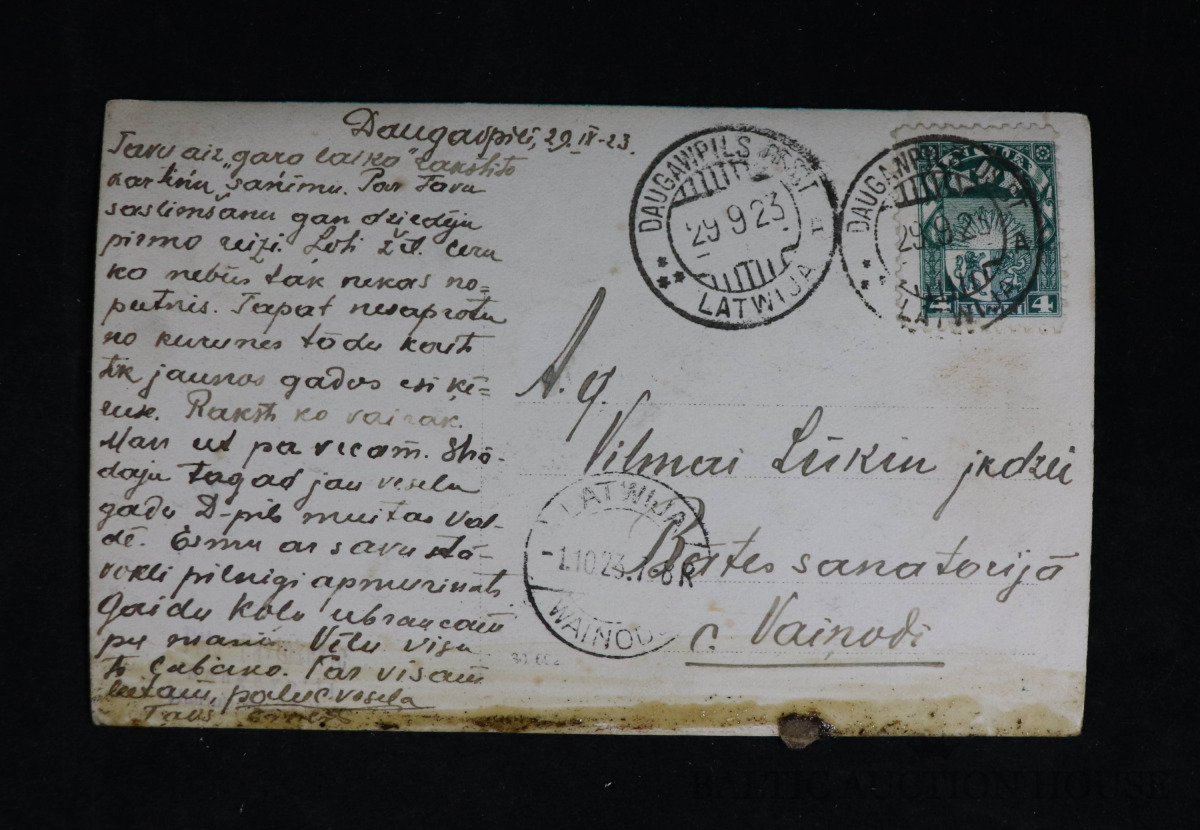 Daugavpilī, 29.IX-23.
Tavu aiz "gara laika" rakstīto
kartiņu saņēmu. Par Tavu
saslimšanu gan dzirdēju
pirmo reizi. Ļoti žēl. Ceru
ka nebūs tak nekas no=
pietnis. Tapat nesaprotu
no kurienes tādu
tik jaunos gados esi ķē=
ruse. Raksti ko vairāk.
Man iet pa vecam. Strā-
dāju tagad jau veselu
gadu D-pils muitas val-
dē. Esmu ar savu stā-
vokli pilnīgi apmierināts.
Gaidu Kolu atbraucam
pie manis. Vēlu visu
to labāko. Par visām
lietām, paliec vesela
Tavs
DAUGAWPILS
29 9 23
LATWIJA
DAUGAWPILS
29 9 23
A
LATWIJA
LATVIJA
4 4
A. g.
Vilmai Lūkin jkdzei
Bātes sanatorijā
c. Vaiņodi
LATWIJA
-1.10 23.
WAINODE
BALTIC AUCTION HOUSE